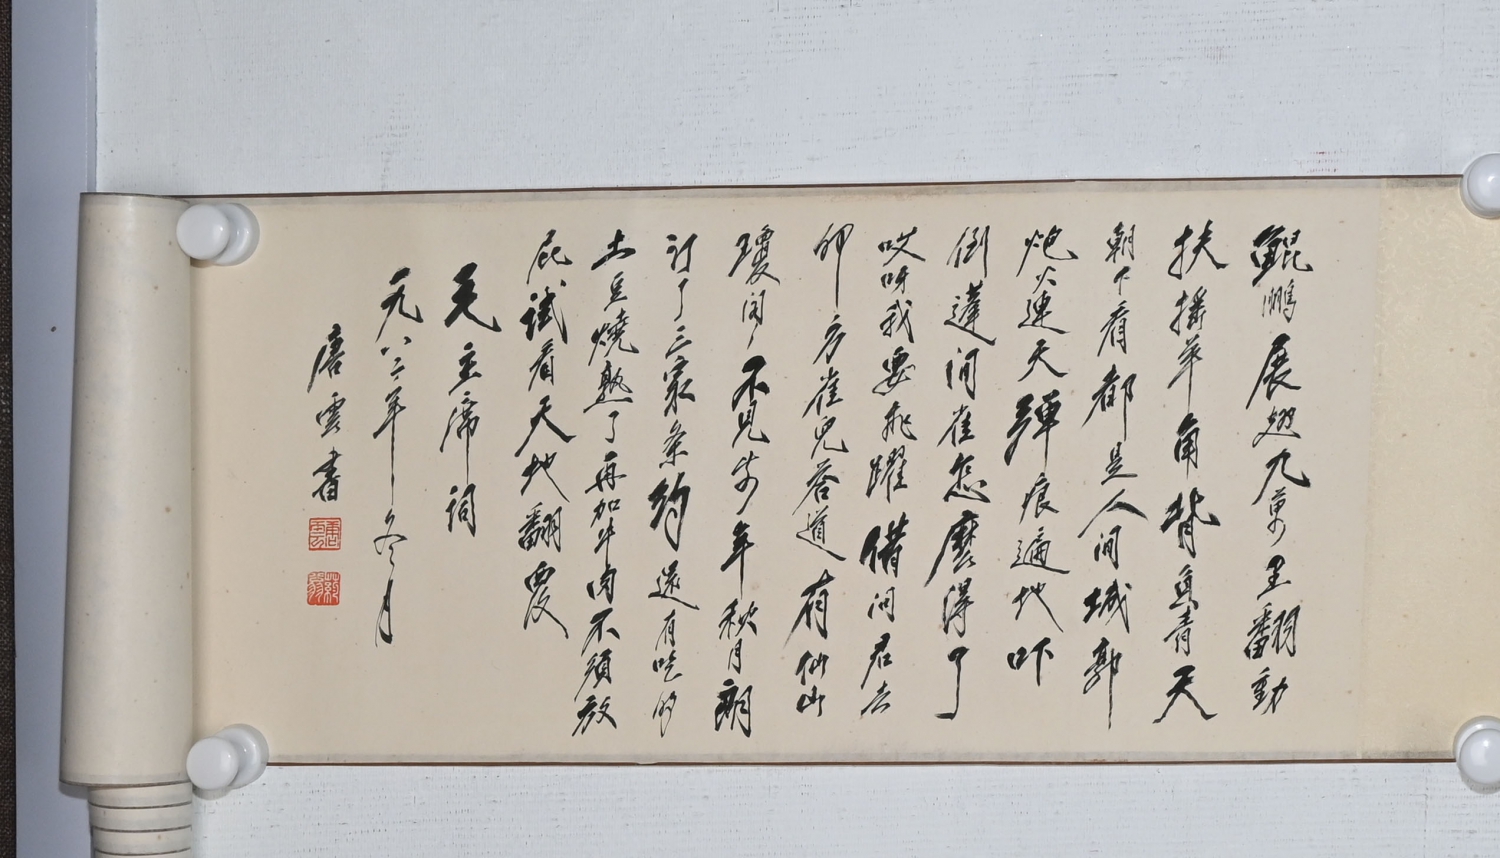 鯤鵬展翅九萬里翻動
扶摇羊角背負青天
朝下看都是人間城郭
炮火連天彈痕遍地吓
倒蓬間雀怎麼得了
哎呀我要飛躍借問君去
何方雀兒答道有仙山
瓊閣不見前年秋月朗
訂了三家条約還有吃的
土豆燒熟了再加牛肉不須放
屁試看天地翻覆
毛主席詞
一九八二年冬月
唐雲書